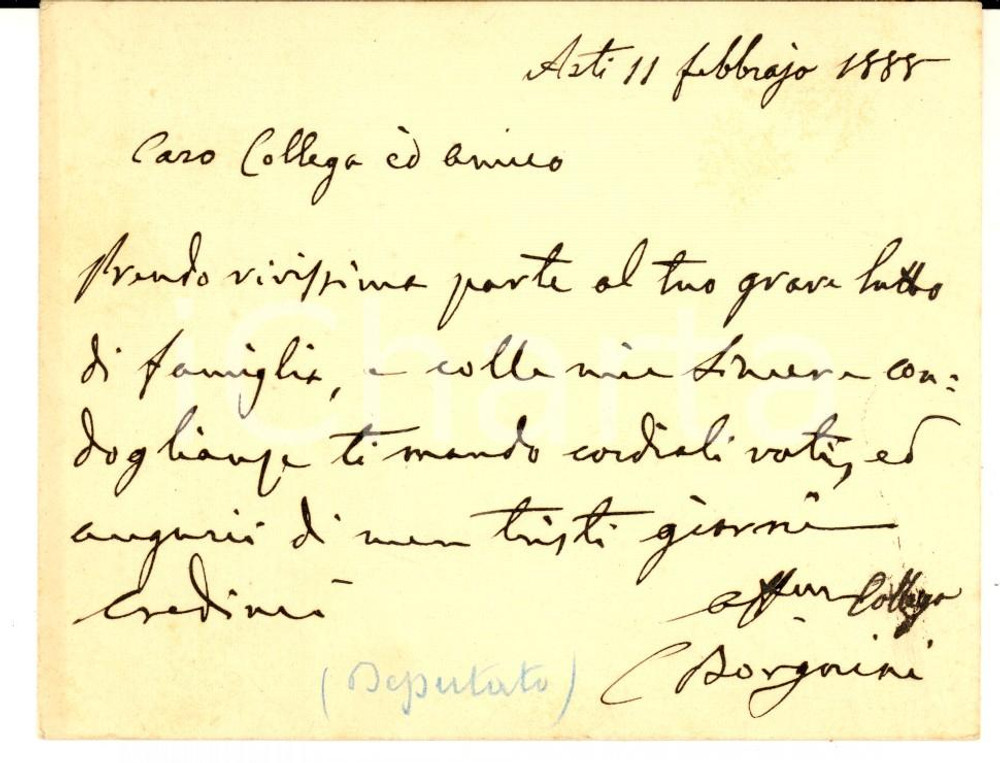 Asti 11 febbrajo 1888
Caro Collega ed amico
Prendo vivissima parte al tuo grave lutto
di famiglia, e colle mie sincere con=
doglianze ti mando cordiali voti, ed
augurii di men tristi giorni
Credimi
affmo Collega
C Borgnini
(Deputato)
iCharta